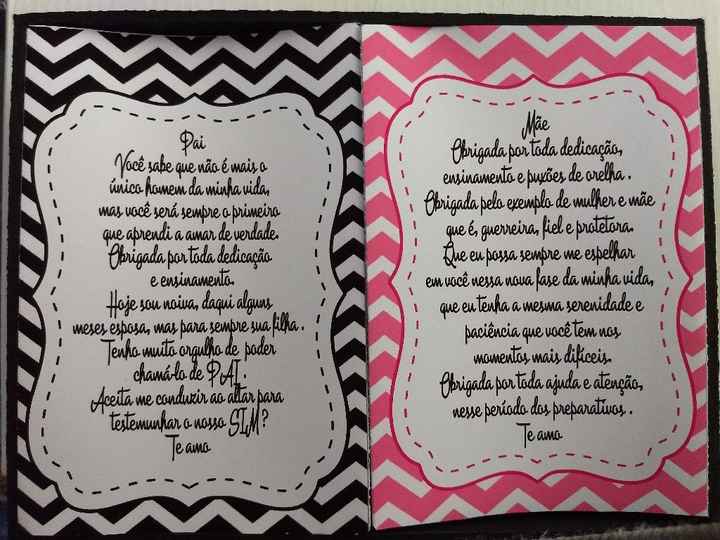 Pai
Você sabe que não é mais o
único homem da minha vida,
mas você será sempre o primeiro
que aprendi a amar de verdade.
Obrigada por toda dedicação
e ensinamento.
Hoje sou noiva, daqui alguns
meses esposa, mas para sempre sua filha.
Tenho muito orgulho de poder
chamá-lo de PAI.
Aceita me conduzir ao altar para
testemunhar o nosso SIM?
Te amo
Mãe
Obrigada por toda dedicação,
ensinamento e puxões de orelha.
Obrigada pelo exemplo de mulher e mãe
que é, guerreira, fiel e protetora.
Que eu possa sempre me espelhar
em você nessa nova fase da minha vida,
que eu tenha a mesma serenidade e
paciência que você tem nos
momentos mais difíceis.
Obrigada por toda ajuda e atenção,
nesse período dos preparativos.
Te amo